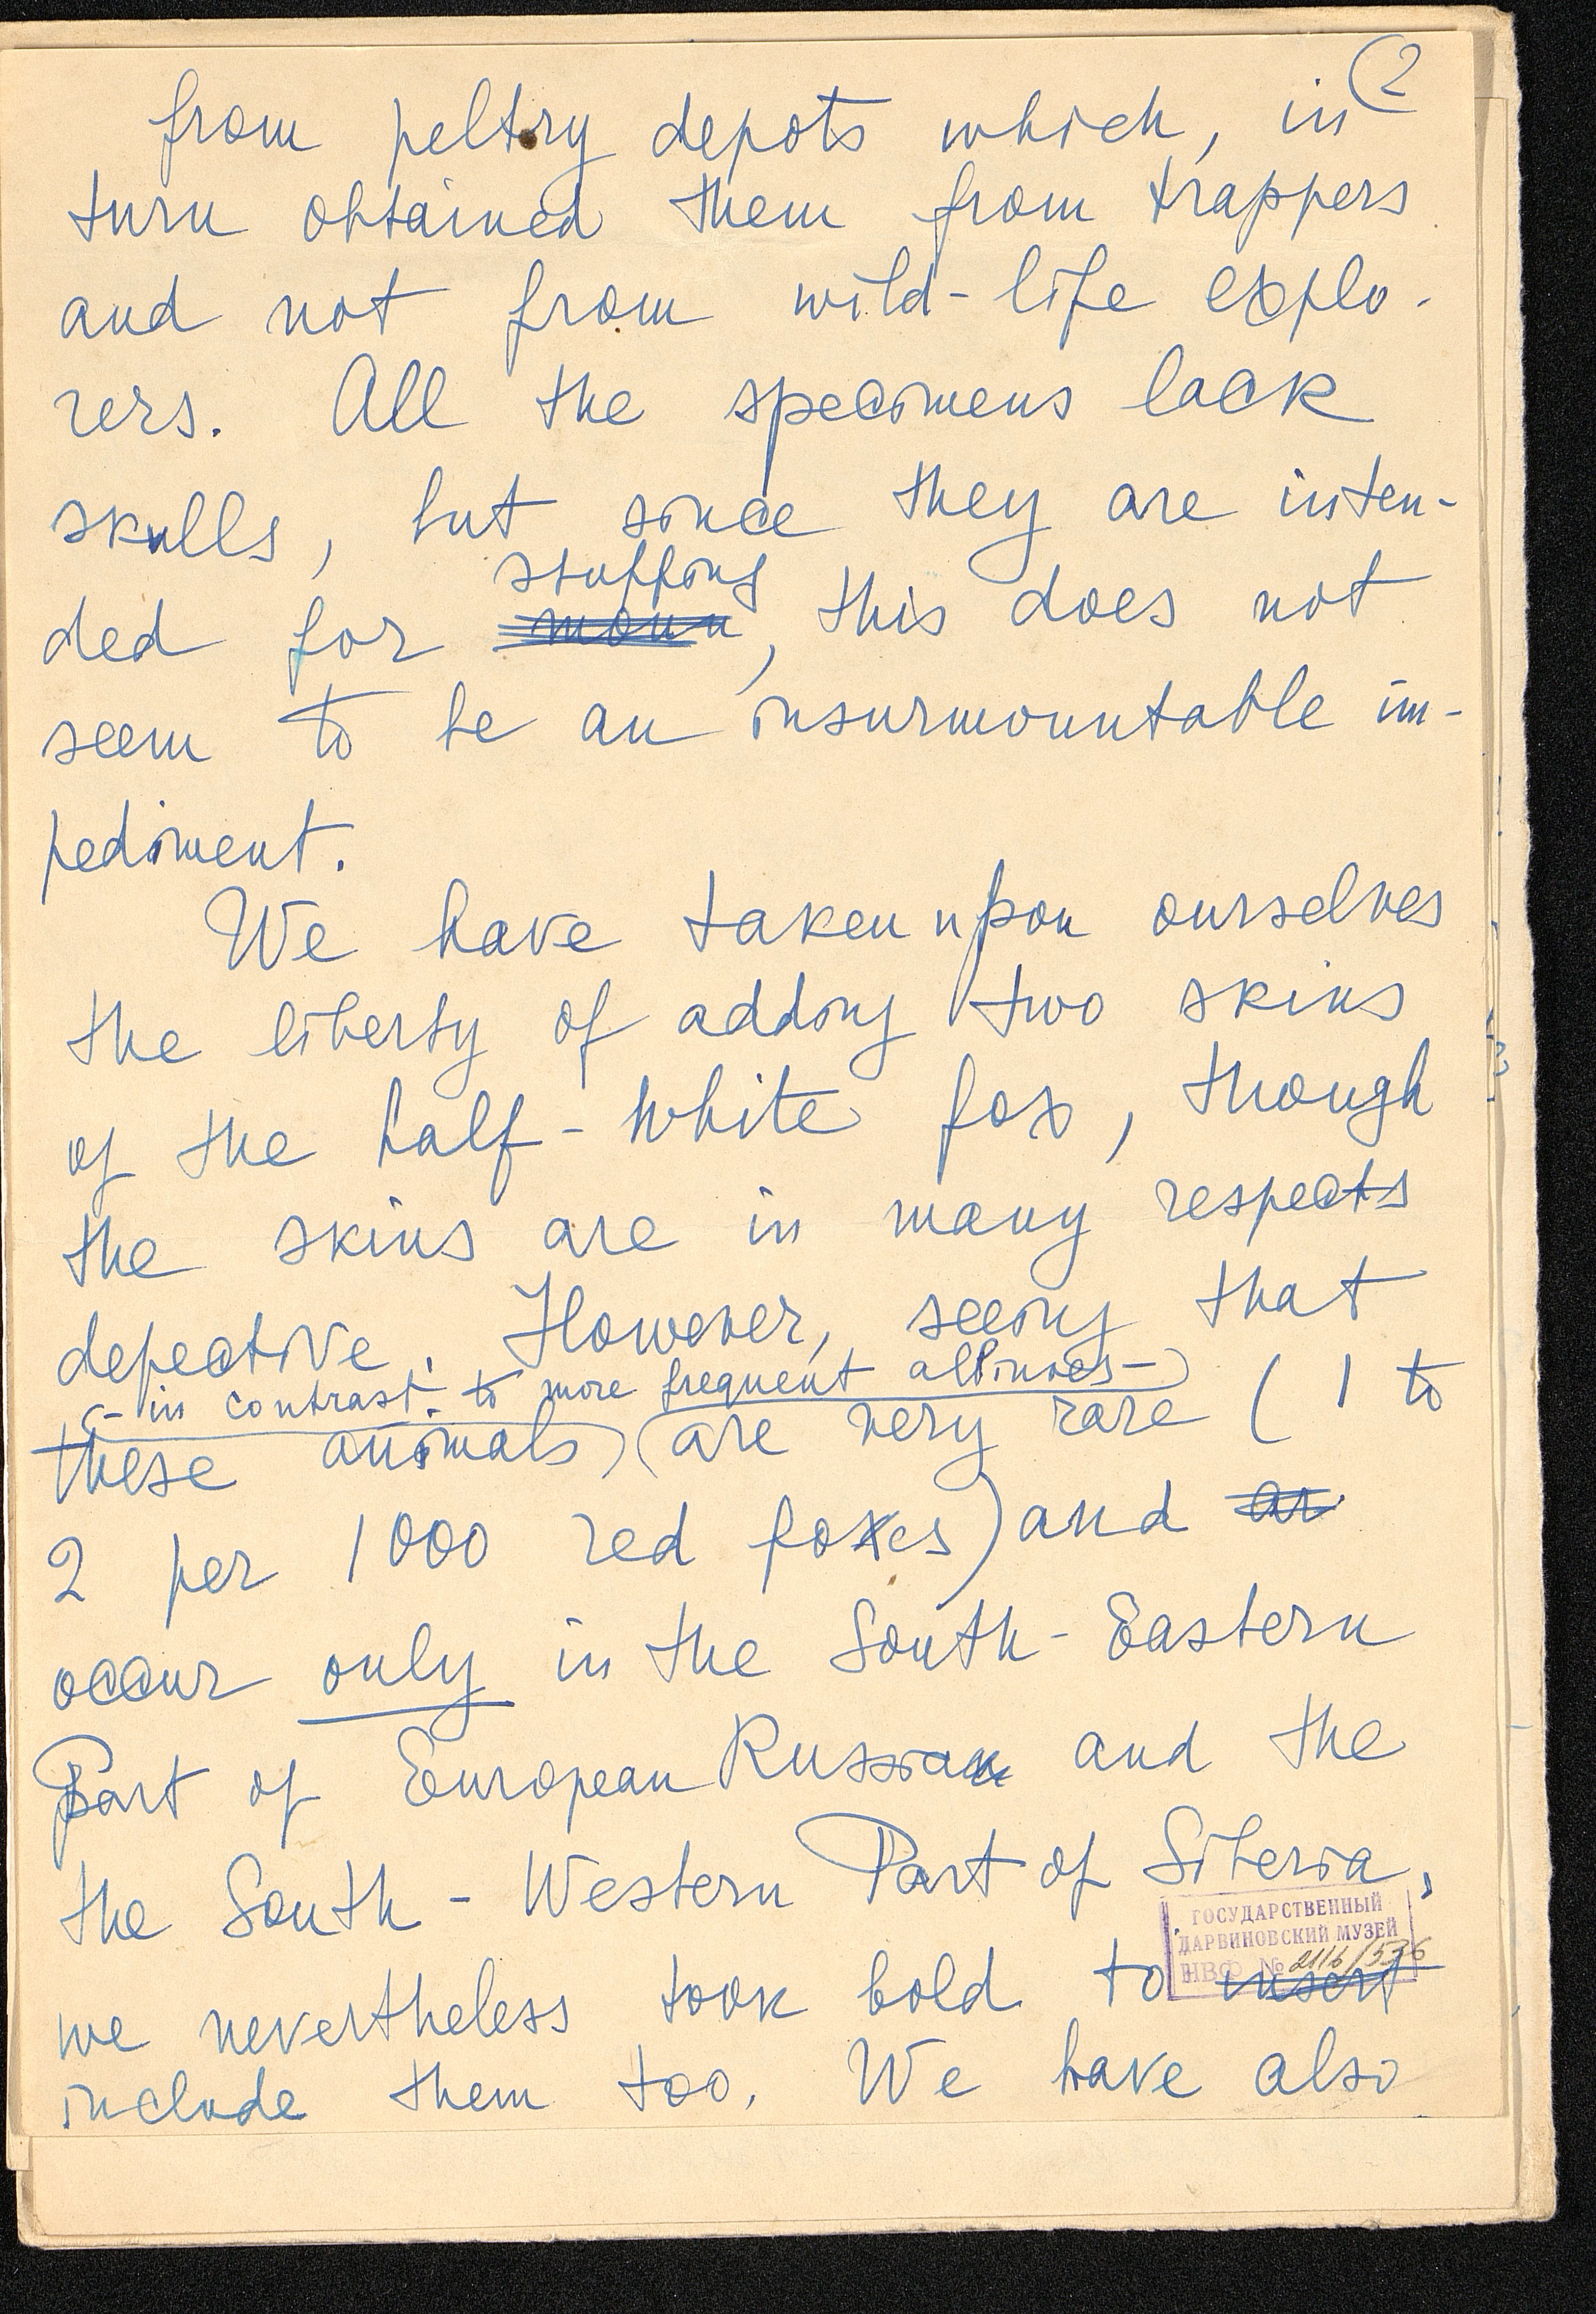 2
from peltry depots which, in
turn obtained them from trappers
and not from wild-life explo-
rers. All the specimens lack
skulls, but since they are inten-
stuffing
ded for moun, this does not
seem to be an insurmountable im-
pediment.
We have taken upon ourselves
the liberty of adding two skins
of the half-white fox, though
the skins are in many respects
defective. However, seeing that
- in contrast to more frequent albinoes -
these animals are very rare (1 to
2 per 1000 red foxes) and ar
occur only in the South-Eastern
Part of European Russia and the
the South-Western Part of Siberia,
ГОСУДАРСТВЕННЫЙ
ДАРВИНОВСКИЙ МУЗЕЙ
НВФ № 2116/536
we nevertheless took bold to insert
include them too. We have also